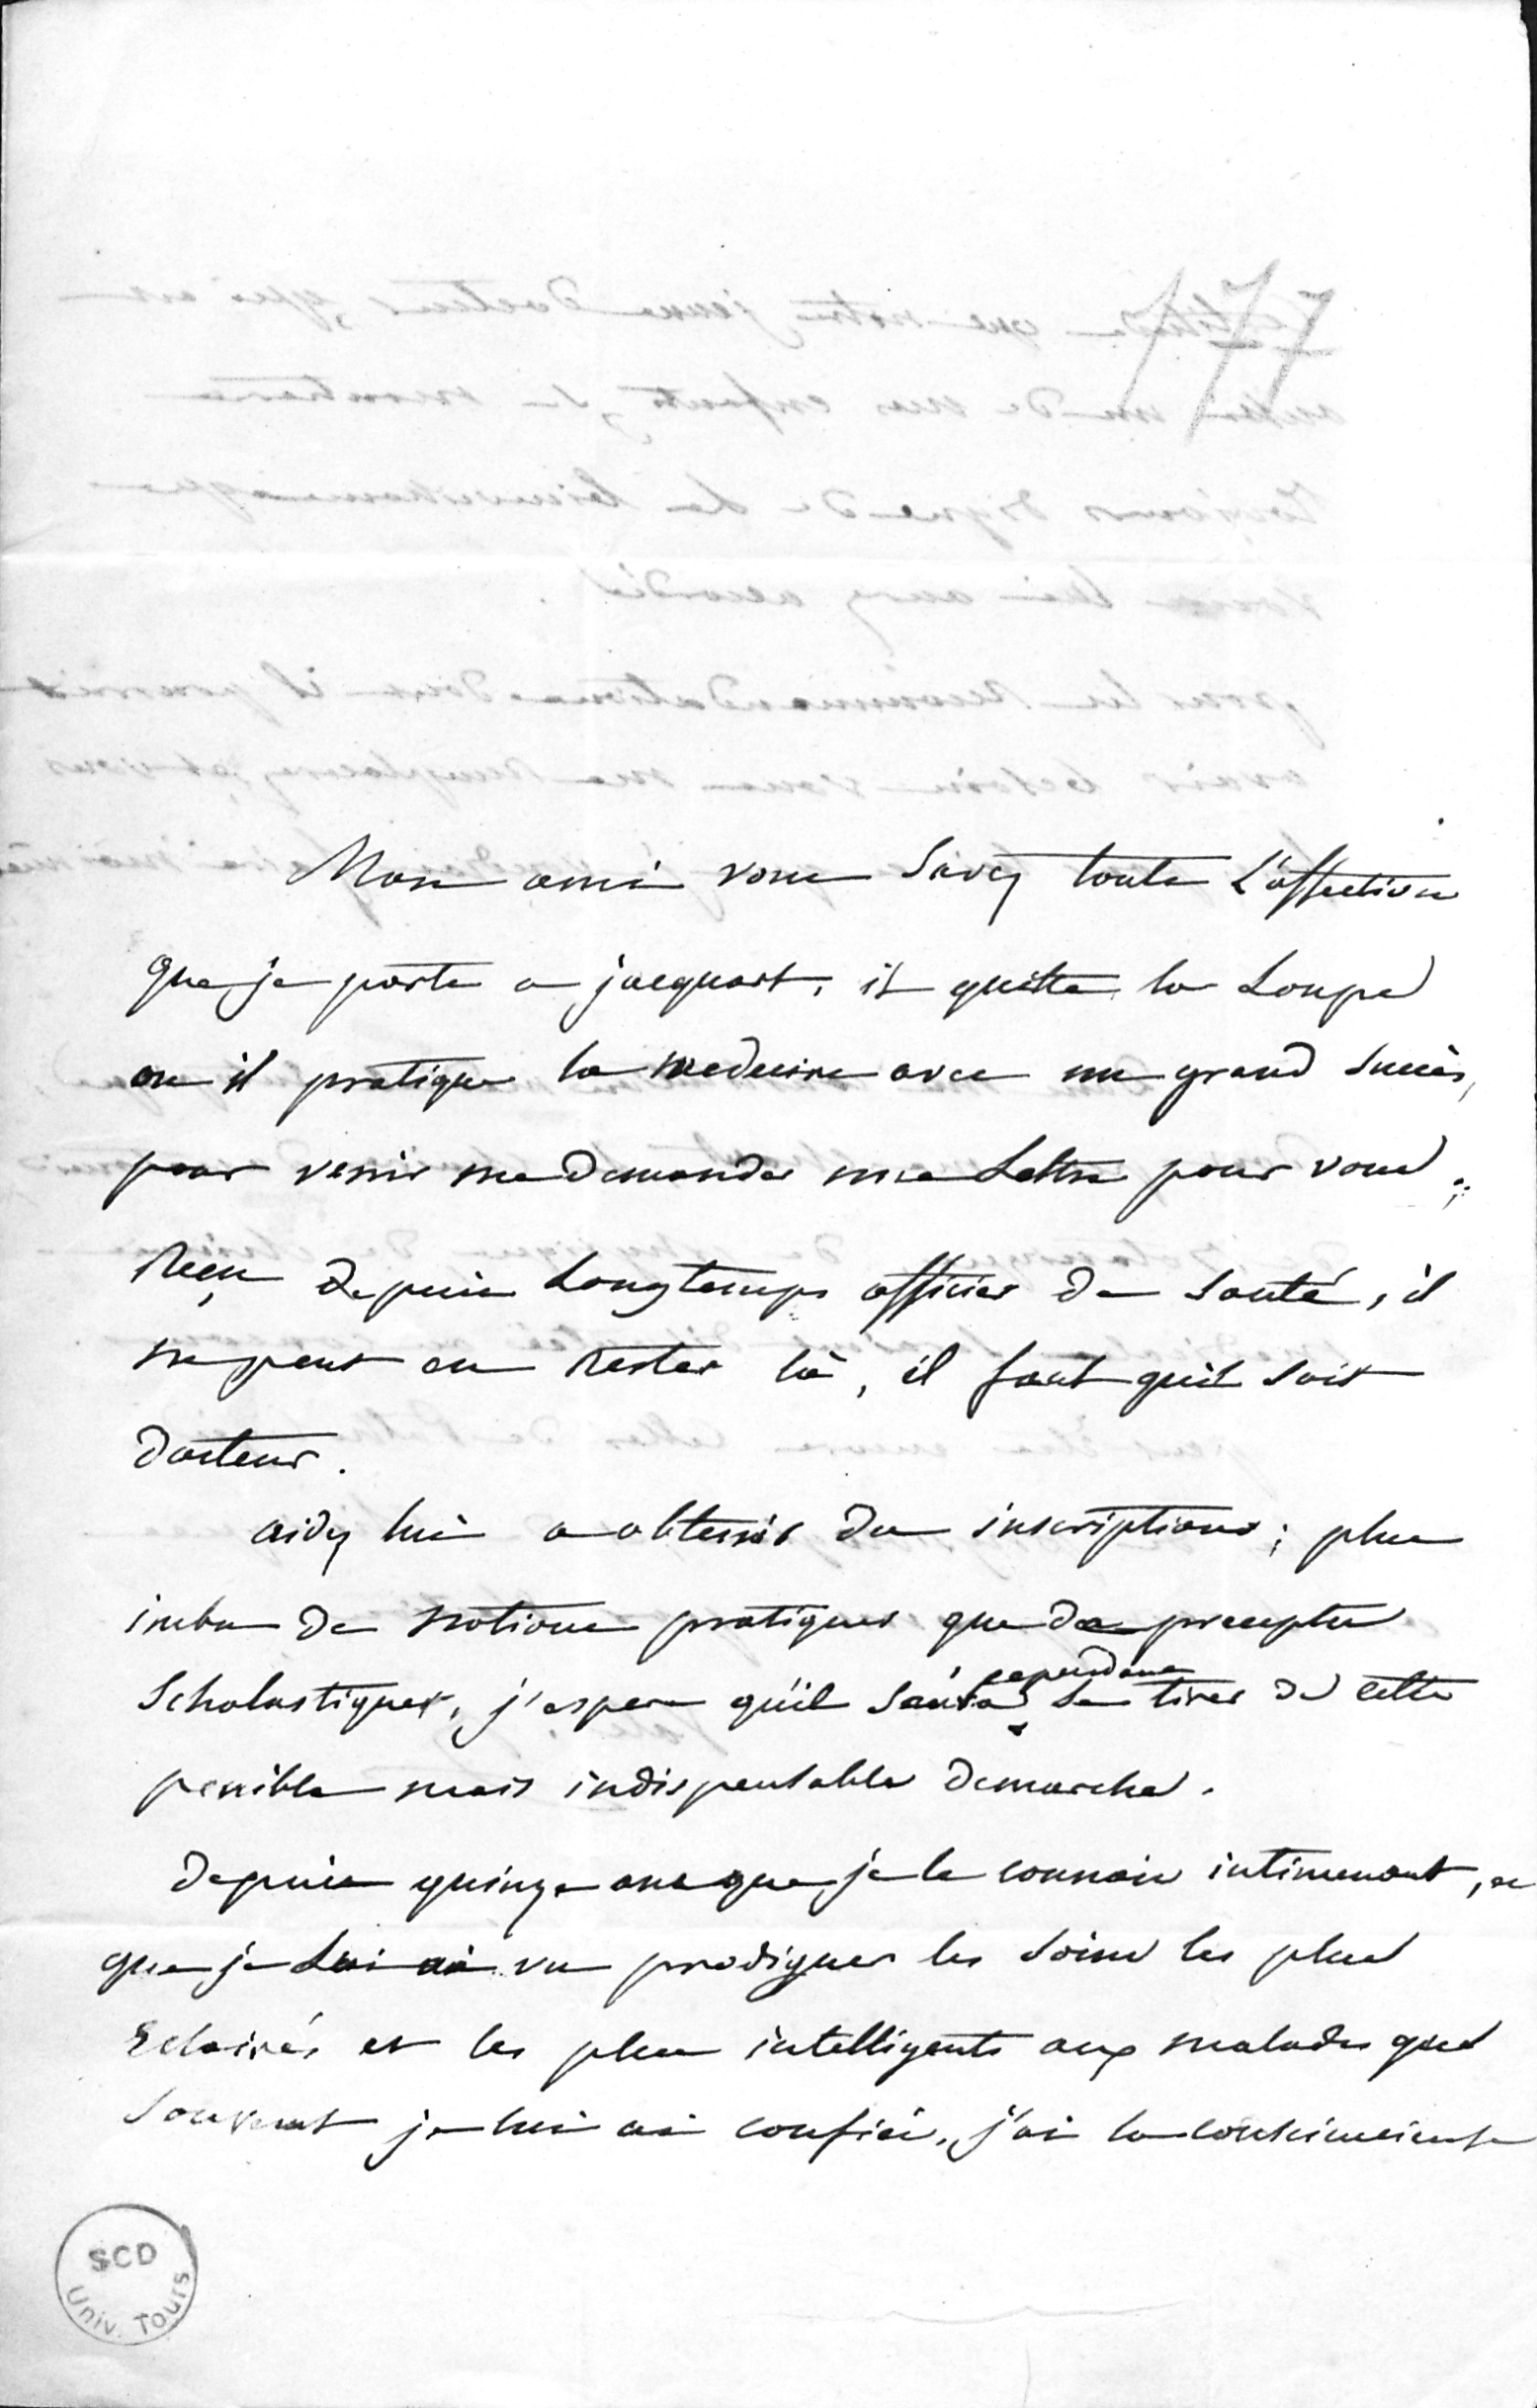 Mon ami vous savez toute l'affection
que je porte a jacquart, il quitte la Loupe
ou il pratique la medecine avec un grand succès,
pour venir me demander une Lettre pour vous.
Reçu depuis Longtemps officier de santé, il
ne peut en rester là, il faut qu'il soit
docteur.
aidez lui a obtenir des inscriptions; plus
imbu de notions pratiques que de preceptes
scholastiques, j'espere qu'il saura cependant se tirer de cette
penible mais indispensable demarche.
depuis quinze ans que je le connais intimement, et
que je Lui ai vu prodiguer les soins les plus
Eclairés et les plus intelligents aux malades que
souvent je lui ai confiés, j'ai la
SCD
Univ. Tours